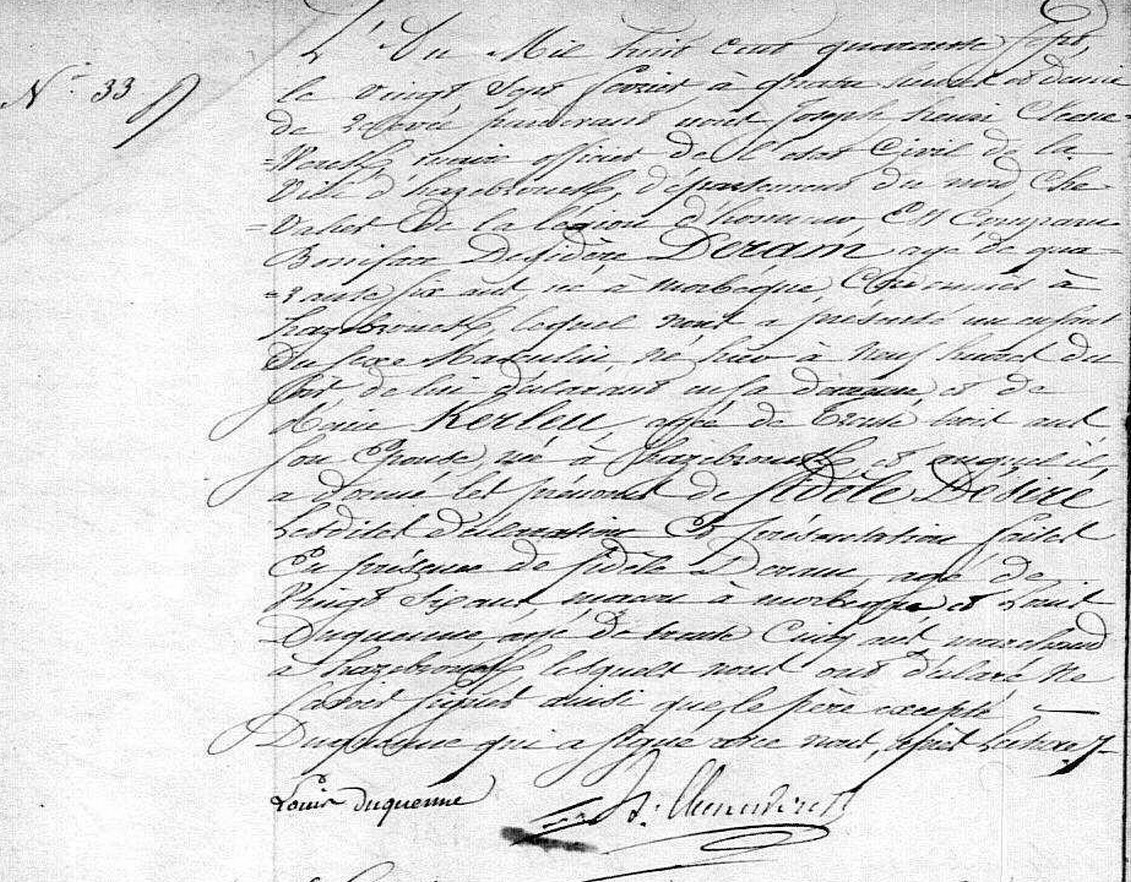 N° 33
L'An Mil huit cent quarante sept,
le vingt sept fevrier à quatre heures et demie
de relevée pardevant nous Joseph henri Cleene-
=Werck, maire officier de l'etat Civil de la
Ville d'hazebrouck, département du nord, Che-
=Valier De la légion d'honneur, Est Comparu
Boniface Desidère Deram, agé de qua-
=rante six ans né à morbecque, à
hazebrouck, lequel nous a présenté un enfant
Du sexe Masculin, né hier à neuf heures du
soir, de lui déclarant en sa demeure, et de
Marie Kerleu, agée de Trente huit ans
son Epouse, née à hazebrouck, et auquel il
a donné les prénoms de fidèle Désiré
Lesdites déclaration Et présentation faites
En présence de fidèle Deram, agé de
Vingt Six ans, maçon à morbecque et Louis
Duquenne, agé De trente Cinq ans marchand
à hazebrouck, lesquels nous ont déclaré Ne
savoir signer ainsi que le père excepté
Duquenne qui a signé avec nous, après lecture
Louis duquenne